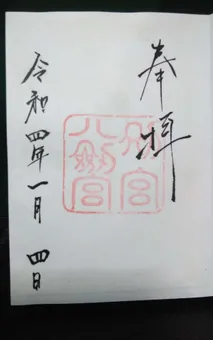 奉拝
別宮
八劔宮
令和四年一月四日